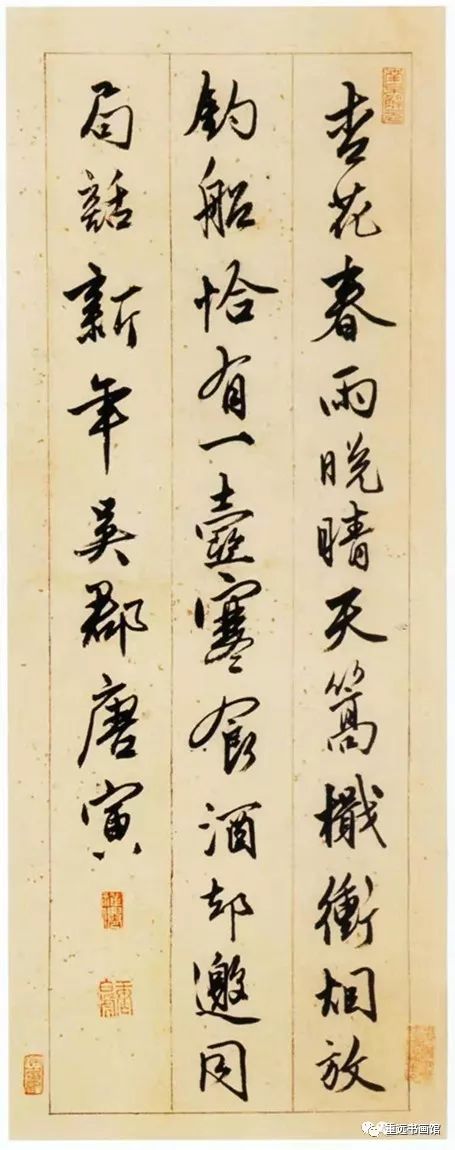 杏花春雨晚晴天篙檝衝烟放
釣船恰有一壺寒食酒却邀同
局話新年吳郡唐寅
重远书画馆